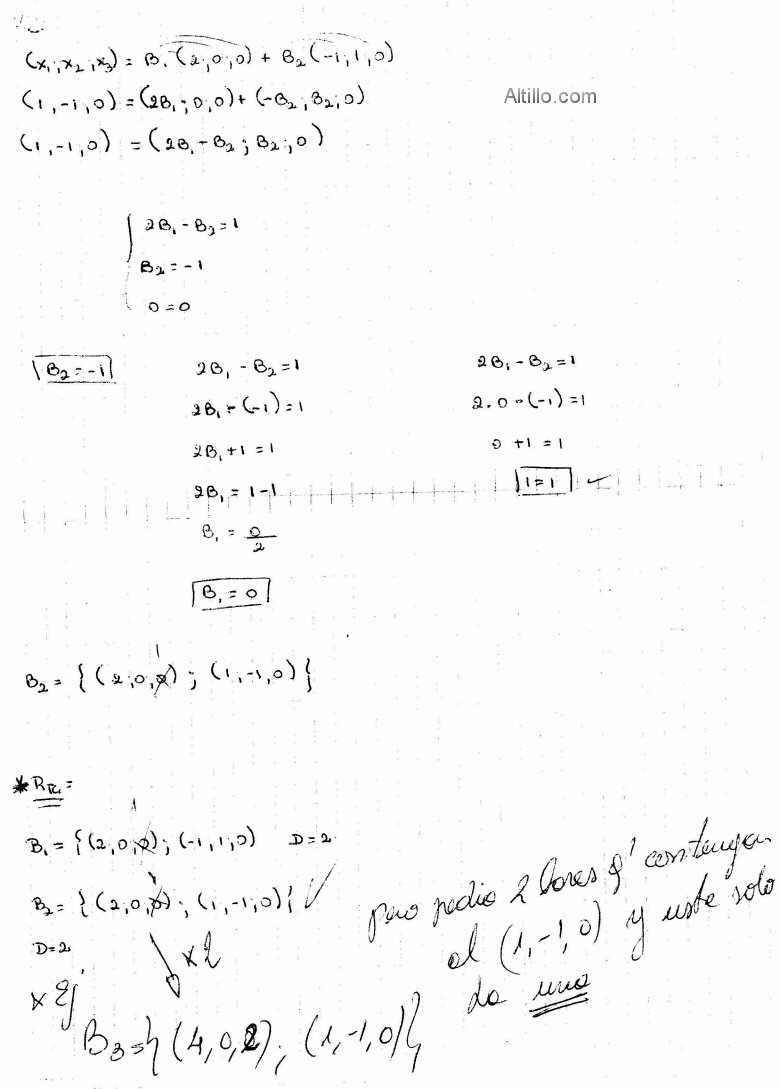 (x₁, x₂, x₃) = B₁ (2,0,0) + B₂ (-1,1,0)
Altillo.com
(1,-1,0) = (2B₁; 0,0) + (-B₂, B₂, 0)
(1,-1,0) = (2B₁ - B₂; B₂; 0)
2B₁ - B₂ = 1
B₂ = -1
0 = 0
B₂ = -1
2B₁ - B₂ = 1
2B₁ - (-1) = 1
2B₁ + 1 = 1
2B₁ = 1-1
B₁ = 0/2
B₁ = 0
2B₁ - B₂ = 1
2.0 - (-1) = 1
0 + 1 = 1
1 = 1 ✓
1
B₂ = { (2,0,0) ; (1,-1,0) }
* Rta =
1
B₁ = { (2,0,0) ; (-1,1,0) D = 2
1
B₂ = { (2,0,0) ; (1,-1,0) } ✓
D = 2
x2
x Ej
B₃ = { (4,0,2) ; (1,-1,0) }
pero pedia 2 bases q' contenga
al (1,-1,0) y uste solo
da una